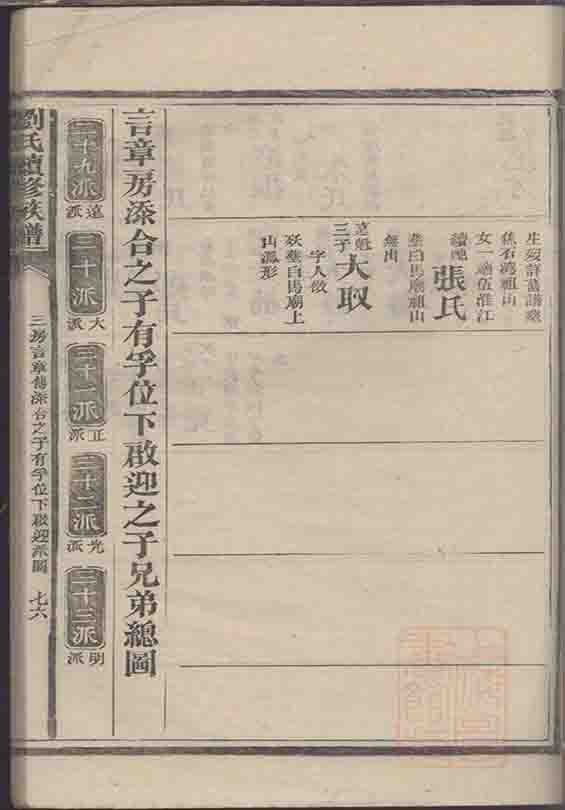 生歿詳舊譜塟
焦石灣祖山
女一適伍淮江
續娶張氏
塟白馬廟祖山
無出
三子大取
字人傚
歿塟白馬廟上
山瓢形
言章房添合之子有孚位下啟迎之子兄弟總圖
二十九派遠派
三十派大派
三十一派正派
三十二派光派
三十三派明派
劉氏續修族譜
三房言章傳添合之子有孚位下啟迎派圖
七六